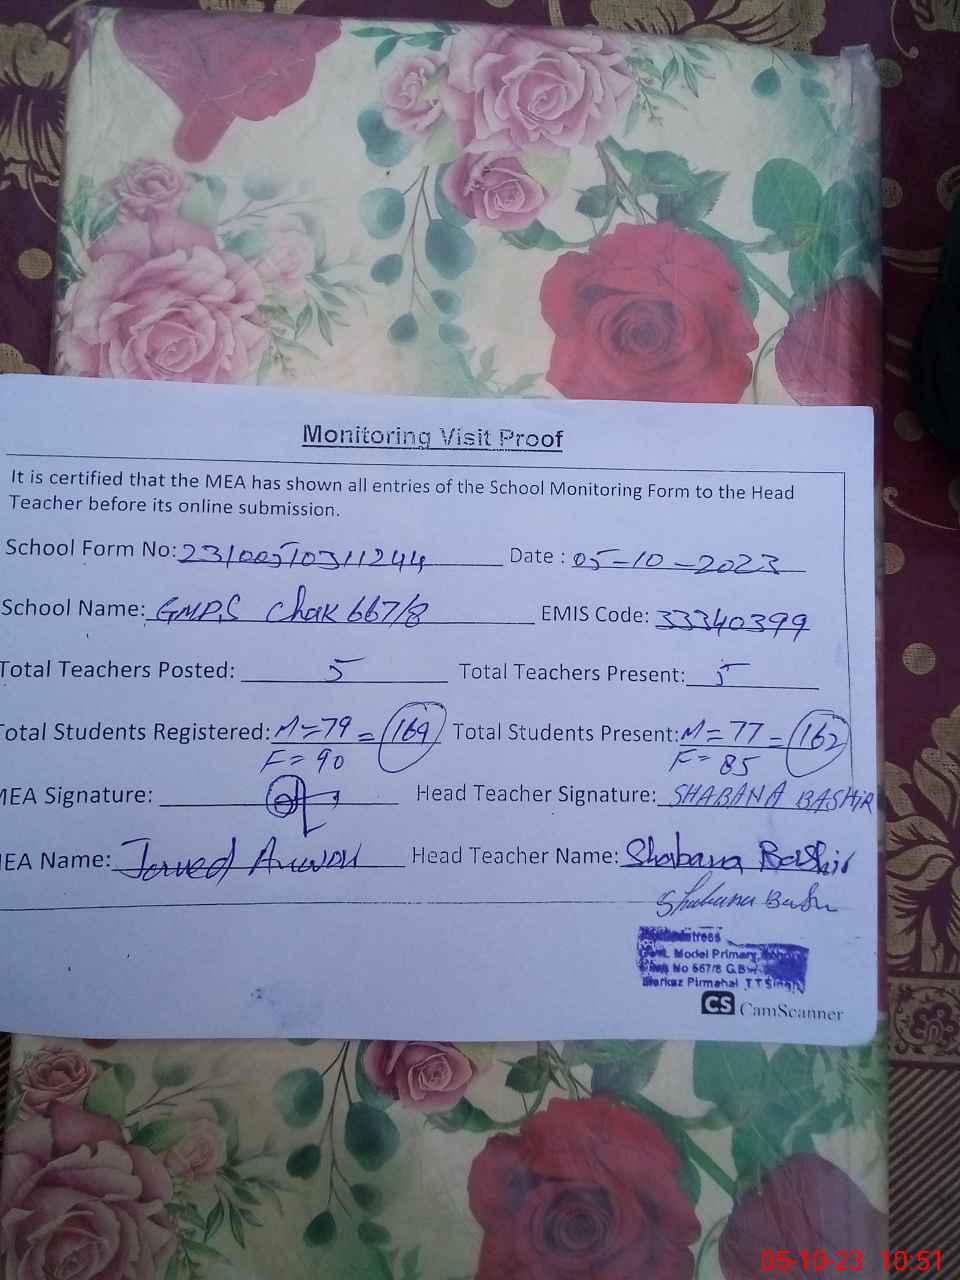 Monitoring Visit Proof
It is certified that the MEA has shown all entries of the School Monitoring Form to the Head
Teacher before its online submission.
School Form No: 23100510311244 Date : 05-10-2023
School Name: GMPS Chak 667/8 EMIS Code: 33340399
Total Teachers Posted: 5 Total Teachers Present: 5
Total Students Registered: M=79 = 169 Total Students Present: M=77 = 162
F=90 F=85
MEA Signature: Head Teacher Signature: SHABANA BASHIR
MEA Name: Javed Anwar Head Teacher Name: Shabana Bashir
Shabana Bashir
Model Primary
No 667/8 G.B
Markaz Pirmahal T.T Singh
CS CamScanner
05-10-23 10:51